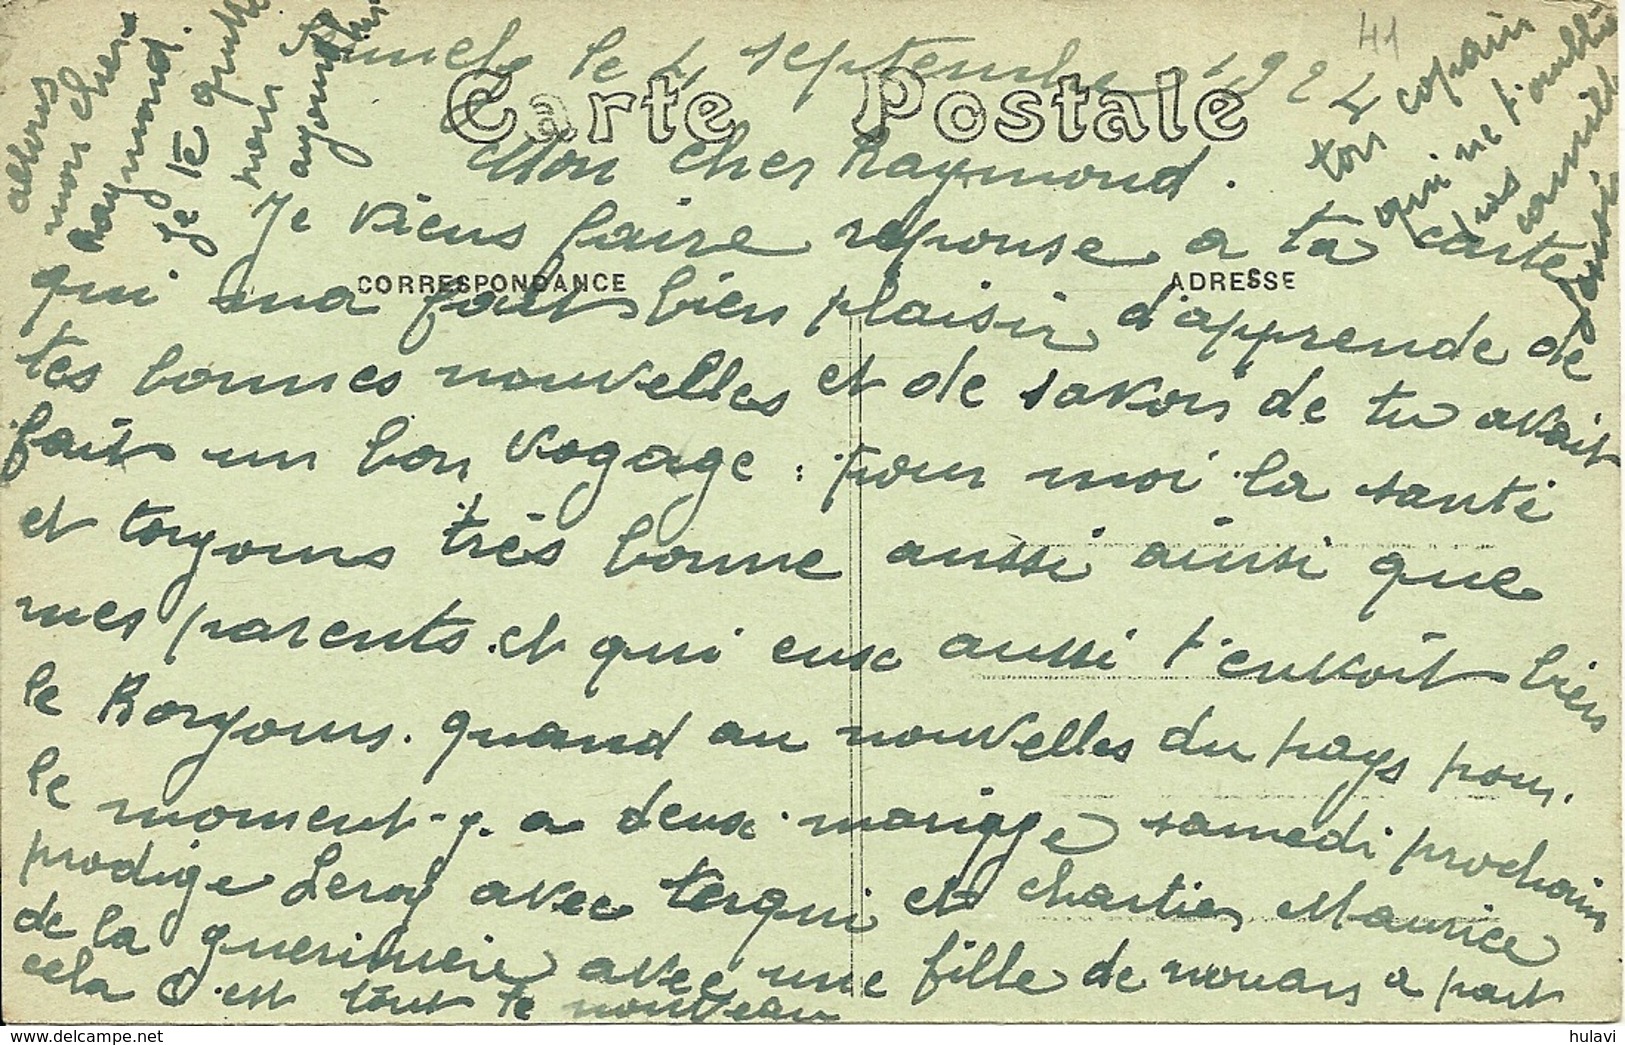 le 4 septembre 1924
41
Carte Postale
Mon cher Raymond.
Je viens faire reponse a ta carte
CORRESPONDANCE
ADRESSE
qui ma fait bien plaisir d'apprende de
tes bonnes nouvelles et de savoir de tu avait
fait un bon vogage : pour moi la santé
et toujours très bonne aussi ainsi que
mes parents et qui eux aussi t'envoit bien
le Bonjours. quand au nouvelles du pays pour.
le moment y a deux mariage samedi prochain
prodige Leroy avec et chartier Maurice
de la avec une fille de nouans a part
cela c'est tout le nouveau
allons
mon cher
Raymond.
je te quitte
pour
aujourdhui
ton copain
qui ne t'oublie
pas
camille
hulavi